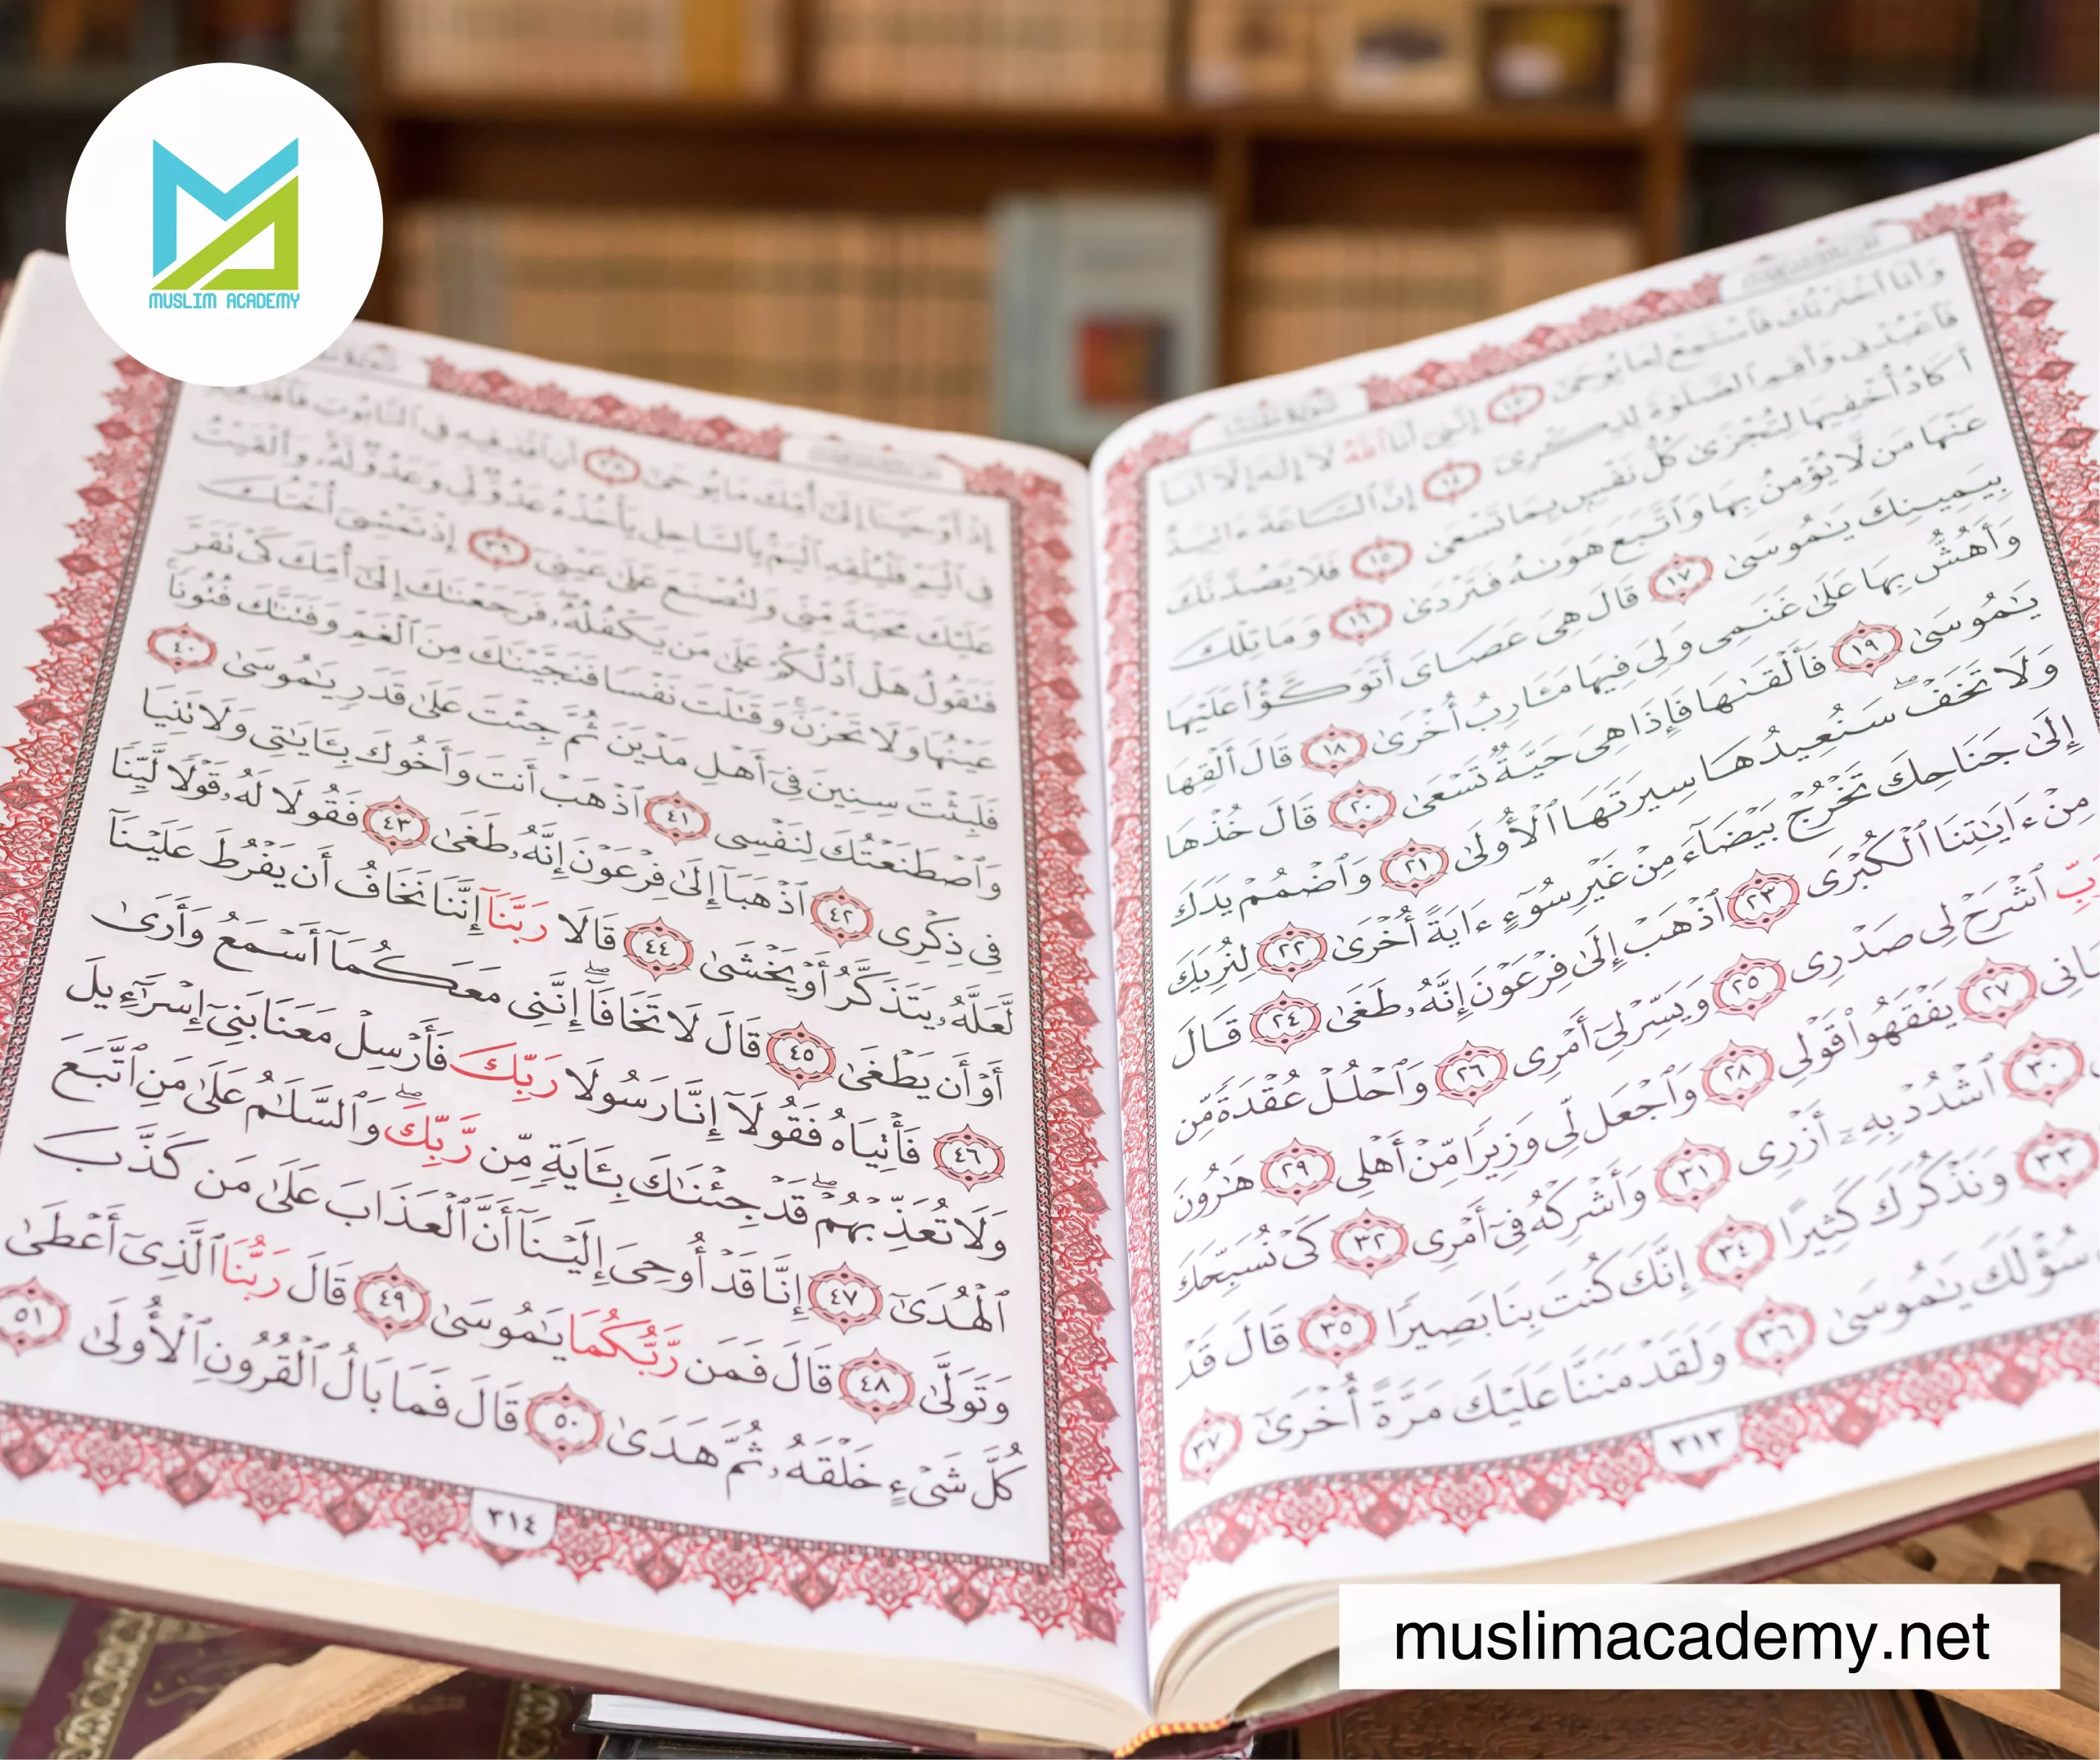 MUSLIM ACADEMY
وَأَنَا ٱخْتَرْتُكَ فَٱسْتَمِعْ لِمَا يُوحَىٰٓ ١٣ إِنَّنِىٓ أَنَا ٱللَّهُ لَآ إِلَٰهَ إِلَّآ أَنَا۠
فَٱعْبُدْنِى وَأَقِمِ ٱلصَّلَوٰةَ لِذِكْرِىٓ ١٤ إِنَّ ٱلسَّاعَةَ ءَاتِيَةٌ
أَكَادُ أُخْفِيهَا لِتُجْزَىٰ كُلُّ نَفْسٍۭ بِمَا تَسْعَىٰ ١٥ فَلَا يَصُدَّنَّكَ
عَنْهَا مَن لَّا يُؤْمِنُ بِهَا وَٱتَّبَعَ هَوَىٰهُ فَتَرْدَىٰ ١٦ وَمَا تِلْكَ
بِيَمِينِكَ يَٰمُوسَىٰ ١٧ قَالَ هِىَ عَصَاىَ أَتَوَكَّؤُا۟ عَلَيْهَا
وَأَهُشُّ بِهَا عَلَىٰ غَنَمِى وَلِىَ فِيهَا مَـَٔارِبُ أُخْرَىٰ ١٨ قَالَ أَلْقِهَا
يَٰمُوسَىٰ ١٩ فَأَلْقَىٰهَا فَإِذَا هِىَ حَيَّةٌ تَسْعَىٰ ٢٠ قَالَ خُذْهَا
وَلَا تَخَفْ ۖ سَنُعِيدُهَا سِيرَتَهَا ٱلْأُولَىٰ ٢١ وَٱضْمُمْ يَدَكَ
إِلَىٰ جَنَاحِكَ تَخْرُجْ بَيْضَآءَ مِنْ غَيْرِ سُوٓءٍ ءَايَةً أُخْرَىٰ ٢٢ لِنُرِيَكَ
مِنْ ءَايَٰتِنَا ٱلْكُبْرَى ٢٣ ٱذْهَبْ إِلَىٰ فِرْعَوْنَ إِنَّهُۥ طَغَىٰ ٢٤ قَالَ
رَبِّ ٱشْرَحْ لِى صَدْرِى ٢٥ وَيَسِّرْ لِىٓ أَمْرِى ٢٦ وَٱحْلُلْ عُقْدَةً مِّن
٢٧ يَفْقَهُوا۟ قَوْلِى ٢٨ وَٱجْعَل لِّى وَزِيرًا مِّنْ أَهْلِى ٢٩ هَٰرُونَ
٣٠ ٱشْدُدْ بِهِۦٓ أَزْرِى ٣١ وَأَشْرِكْهُ فِىٓ أَمْرِى ٣٢ كَىْ نُسَبِّحَكَ
٣٣ وَنَذْكُرَكَ كَثِيرًا ٣٤ إِنَّكَ كُنتَ بِنَا بَصِيرًا ٣٥ قَالَ قَدْ
سُؤْلَكَ يَٰمُوسَىٰ ٣٦ وَلَقَدْ مَنَنَّا عَلَيْكَ مَرَّةً أُخْرَىٰٓ ٣٧
٣١٣
إِذْ أَوْحَيْنَآ إِلَىٰٓ أُمِّكَ مَا يُوحَىٰٓ ٣٨ أَنِ ٱقْذِفِيهِ فِى ٱلتَّابُوتِ فَٱقْذِفِيهِ
فِى ٱلْيَمِّ فَلْيُلْقِهِ ٱلْيَمُّ بِٱلسَّاحِلِ يَأْخُذْهُ عَدُوٌّ لِّى وَعَدُوٌّ لَّهُۥ ۚ وَأَلْقَيْتُ
عَلَيْكَ مَحَبَّةً مِّنِّى وَلِتُصْنَعَ عَلَىٰ عَيْنِىٓ ٣٩ إِذْ تَمْشِىٓ أُخْتُكَ
فَتَقُولُ هَلْ أَدُلُّكُمْ عَلَىٰ مَن يَكْفُلُهُۥ ۖ فَرَجَعْنَٰكَ إِلَىٰٓ أُمِّكَ كَىْ تَقَرَّ
عَيْنُهَا وَلَا تَحْزَنَ ۚ وَقَتَلْتَ نَفْسًا فَنَجَّيْنَٰكَ مِنَ ٱلْغَمِّ وَفَتَنَّٰكَ فُتُونًا ۚ
فَلَبِثْتَ سِنِينَ فِىٓ أَهْلِ مَدْيَنَ ثُمَّ جِئْتَ عَلَىٰ قَدَرٍ يَٰمُوسَىٰ ٤٠
وَٱصْطَنَعْتُكَ لِنَفْسِى ٤١ ٱذْهَبْ أَنتَ وَأَخُوكَ بِـَٔايَٰتِى وَلَا تَنِيَا
فِى ذِكْرِى ٤٢ ٱذْهَبَآ إِلَىٰ فِرْعَوْنَ إِنَّهُۥ طَغَىٰ ٤٣ فَقُولَا لَهُۥ قَوْلًا لَّيِّنًا
لَّعَلَّهُۥ يَتَذَكَّرُ أَوْ يَخْشَىٰ ٤٤ قَالَا رَبَّنَآ إِنَّنَا نَخَافُ أَن يَفْرُطَ عَلَيْنَآ
أَوْ أَن يَطْغَىٰ ٤٥ قَالَ لَا تَخَافَآ ۖ إِنَّنِى مَعَكُمَآ أَسْمَعُ وَأَرَىٰ
٤٦ فَأْتِيَاهُ فَقُولَآ إِنَّا رَسُولَا رَبِّكَ فَأَرْسِلْ مَعَنَا بَنِىٓ إِسْرَٰٓءِيلَ
وَلَا تُعَذِّبْهُمْ ۖ قَدْ جِئْنَٰكَ بِـَٔايَةٍ مِّن رَّبِّكَ ۖ وَٱلسَّلَٰمُ عَلَىٰ مَنِ ٱتَّبَعَ
ٱلْهُدَىٰٓ ٤٧ إِنَّا قَدْ أُوحِىَ إِلَيْنَآ أَنَّ ٱلْعَذَابَ عَلَىٰ مَن كَذَّبَ
وَتَوَلَّىٰ ٤٨ قَالَ فَمَن رَّبُّكُمَا يَٰمُوسَىٰ ٤٩ قَالَ رَبُّنَا ٱلَّذِىٓ أَعْطَىٰ
كُلَّ شَىْءٍ خَلْقَهُۥ ثُمَّ هَدَىٰ ٥٠ قَالَ فَمَا بَالُ ٱلْقُرُونِ ٱلْأُولَىٰ ٥١
٣١٤
muslimacademy.net